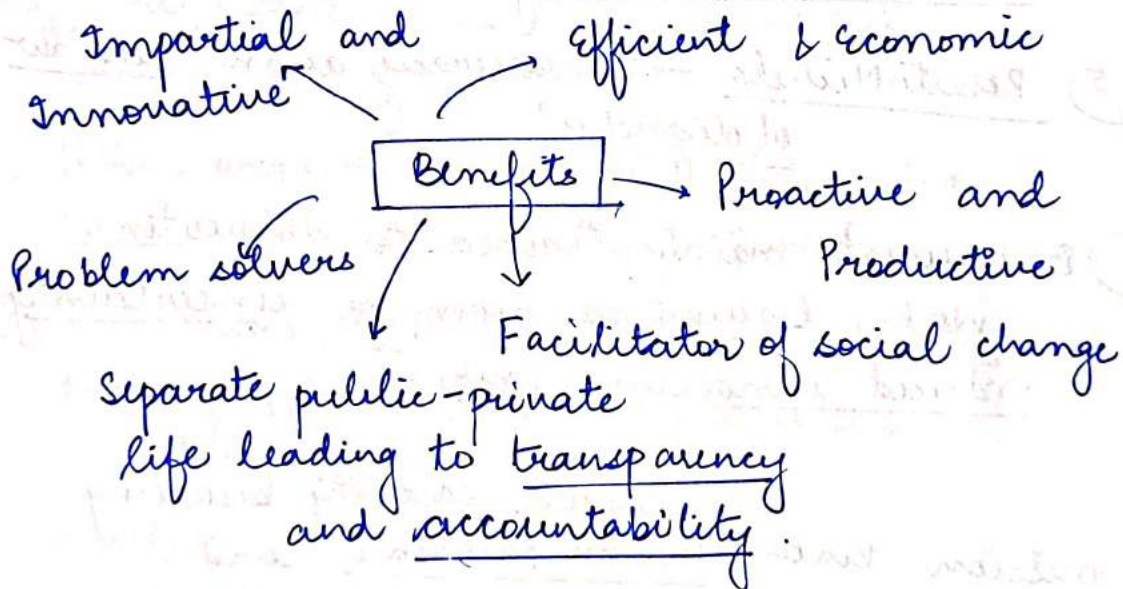 Impartial and
Innovative
Efficient & Economic
Benefits
Proactive and
Productive
Problem solvers
Facilitator of social change
Separate public-private
life leading to transparency
and accountability.